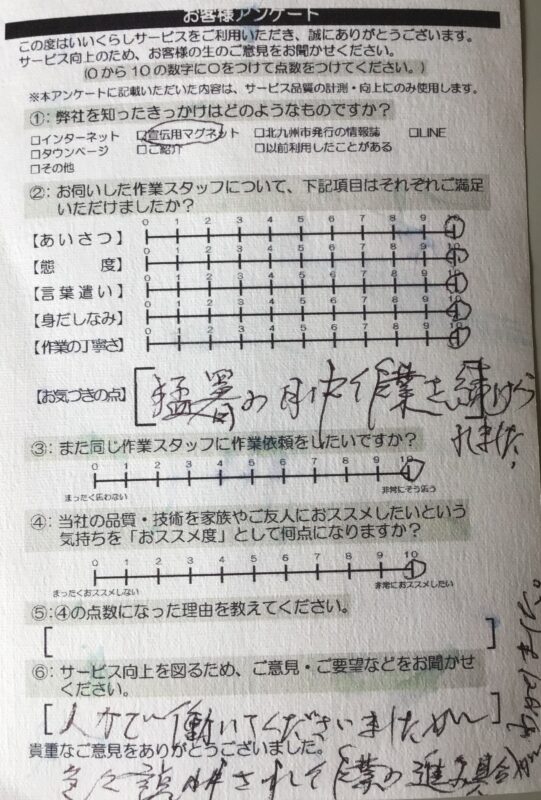 お客様アンケート
この度はいいくらしサービスをご利用いただき、誠にありがとうございます。
サービス向上のため、お客様の生のご意見をお聞かせください。
(0から10の数字に○をつけて点数をつけてください。)
※本アンケートに記載いただいた内容は、サービス品質の計測・向上にのみ使用します。
①:弊社を知ったきっかけはどのようなものですか?
□インターネット □宣伝用マグネット □北九州市発行の情報誌 □LINE
□タウンページ □ご紹介 □以前利用したことがある
□その他
②:お伺いした作業スタッフについて、下記項目はそれぞれご満足
いただけましたか?
0 1 2 3 4 5 6 7 8 9 10
【あいさつ】
0 1 2 3 4 5 6 7 8 9 10
【態 度】
0 1 2 3 4 5 6 7 8 9 10
【言葉遣い】
0 1 2 3 4 5 6 7 8 9 10
【身だしなみ】
0 1 2 3 4 5 6 7 8 9 10
【作業の丁寧さ】
【お気づきの点】[猛暑の中作業を続けら
れました。
③:また同じ作業スタッフに作業依頼をしたいですか?
0 1 2 3 4 5 6 7 8 9 10
まったく思わない 非常にそう思う
④:当社の品質・技術を家族やご友人におススメしたいという
気持ちを「おススメ度」として何点になりますか?
0 1 2 3 4 5 6 7 8 9 10
まったくおススメしない 非常におススメしたい
⑤:④の点数になった理由を教えてください。
[ ]
⑥:サービス向上を図るため、ご意見・ご要望などをお聞かせ
ください。
[人力で働いてくださいましたが]
貴重なご意見をありがとうございました。
されて作業の進み具合が